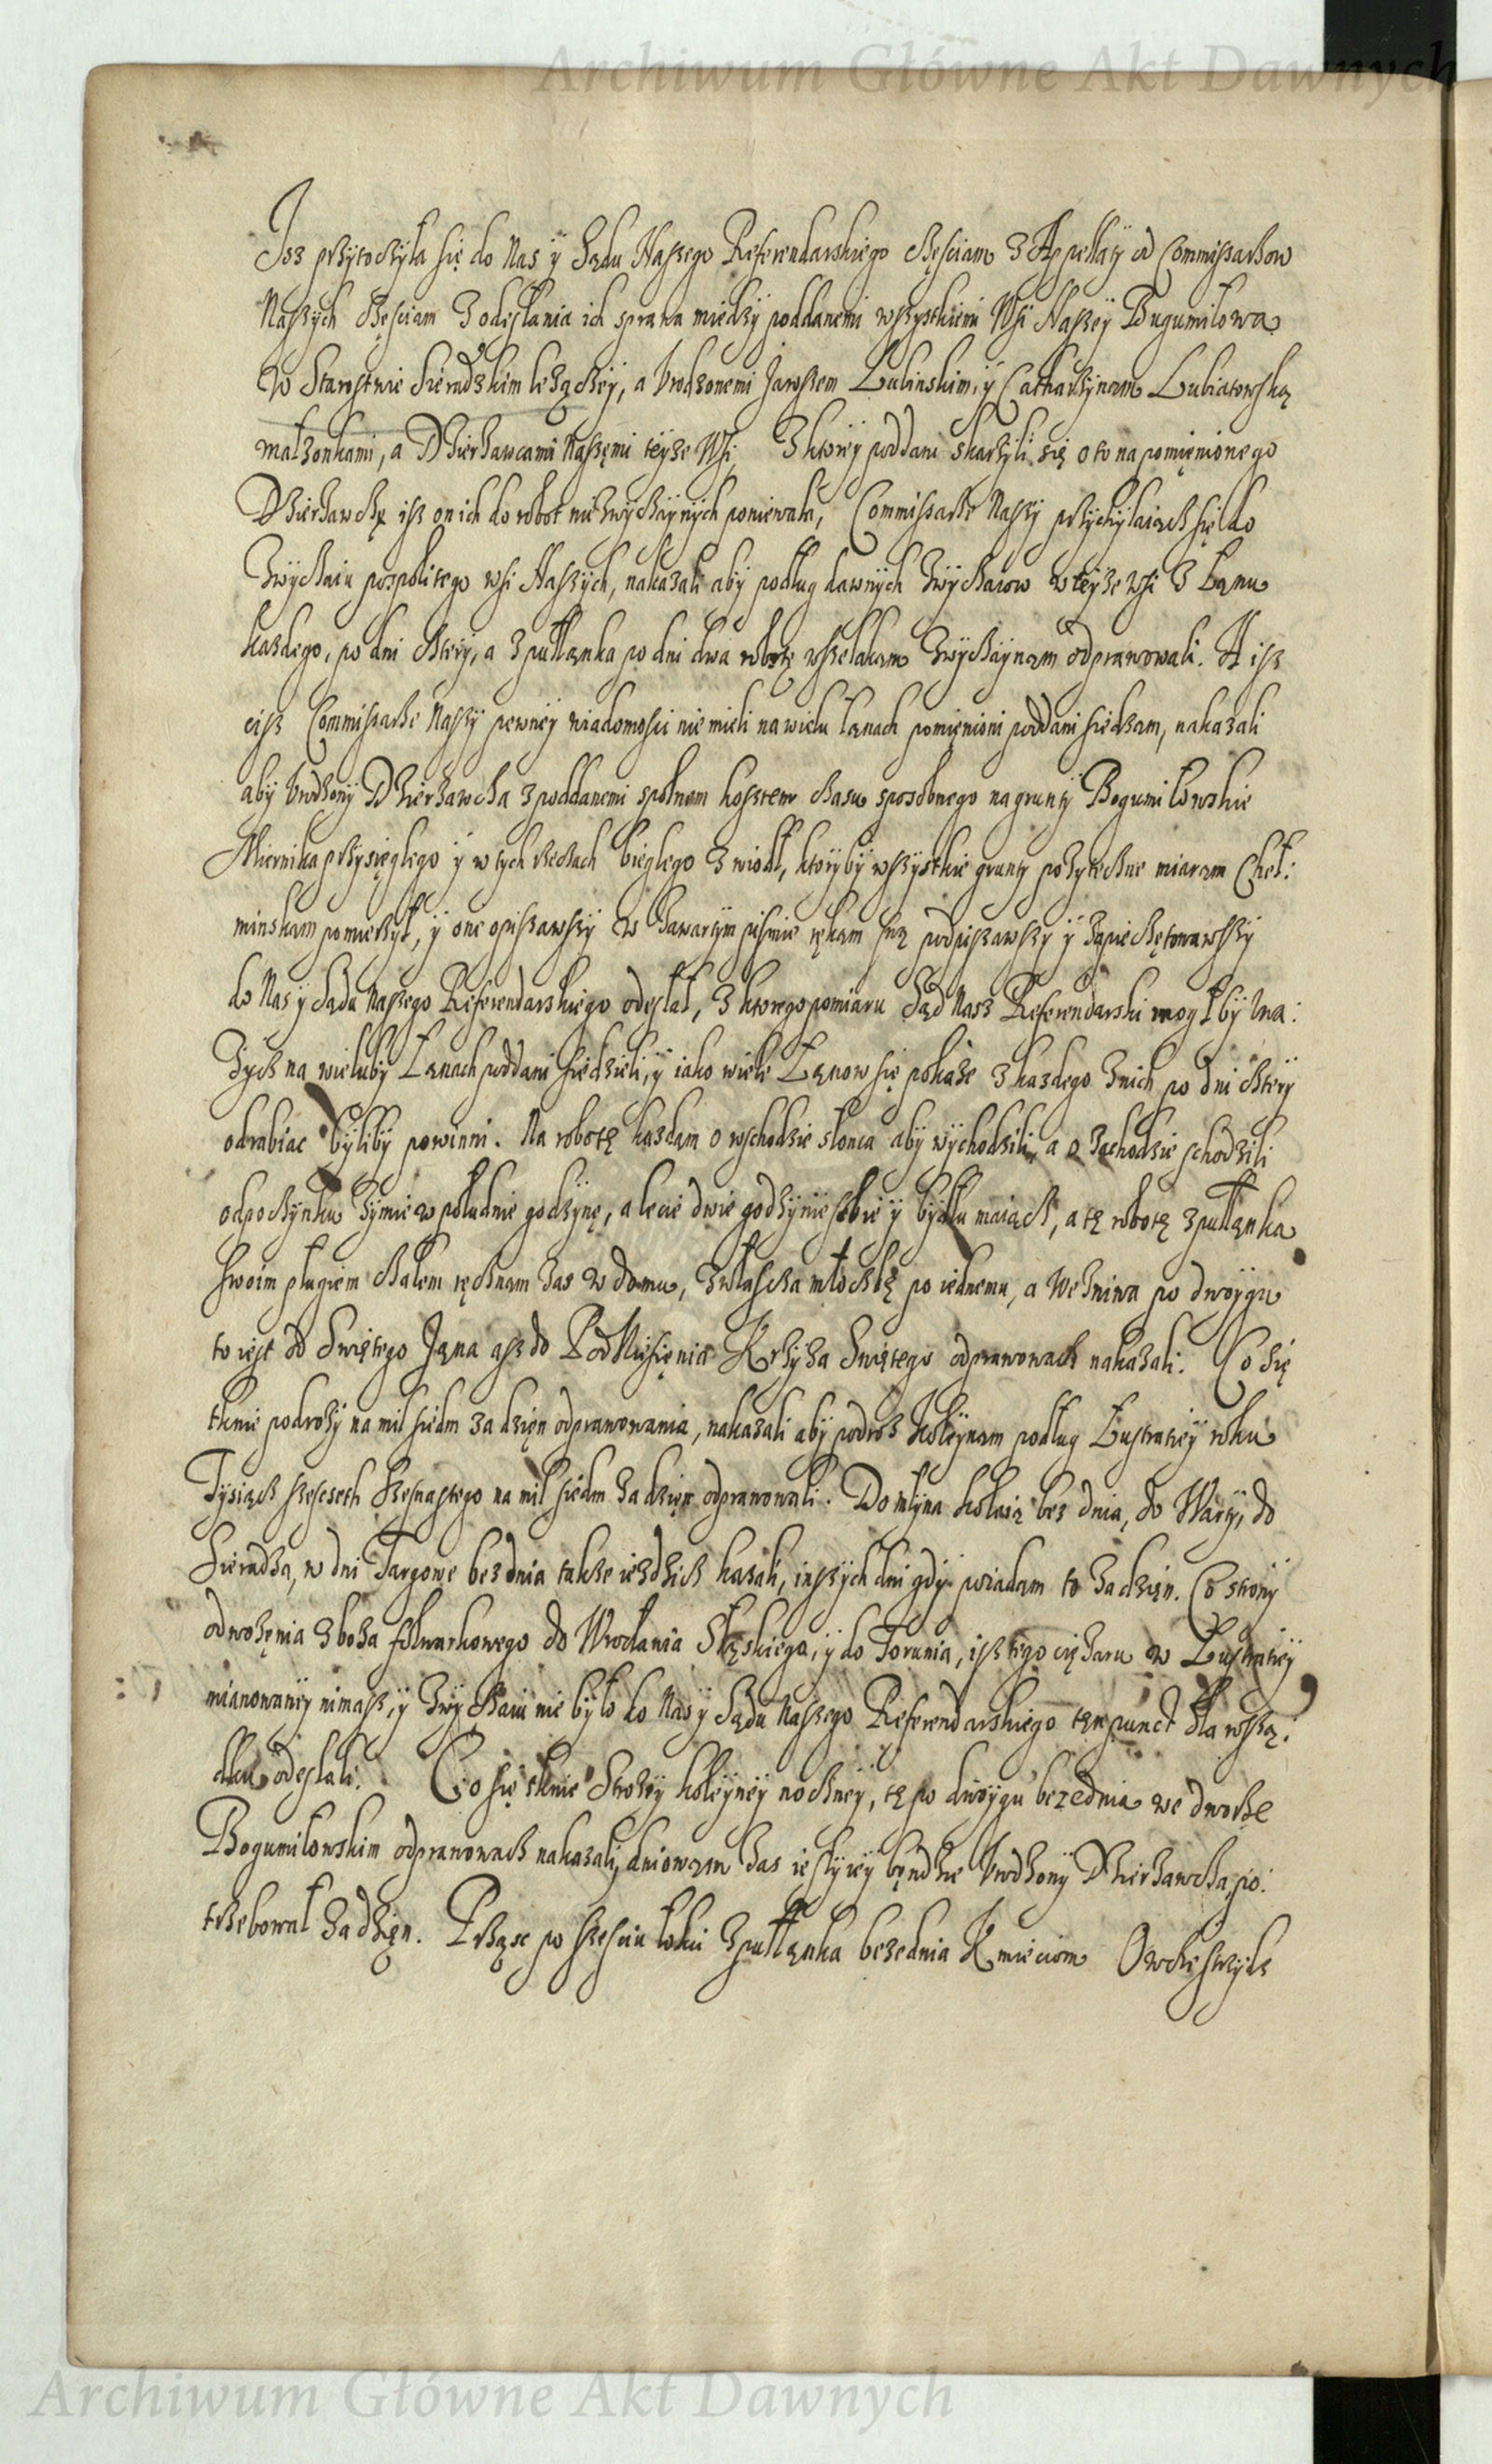 Archiwum Główne Akt Dawnych
Isz przytoczyła się do Nas y Sądu Naszego Referendarskiego częsciam z Appellaty od Commissarzow
Naszych częsciam z odesłania ich sprawa miedzy poddanemi wszystkiemi Wsi Naszey Bugumilowa
w Starostwie Sieradzkim leżączey, a Urodzonemi Jaroszem Lubinskim, y Catharzynam Lubiatowską
małzonkami, a Dzierżawcami Naszęmi teyze Wsi, z ktorey poddani skarzyli się o to na pomięnionego
Dzierżawczę isz on ich do robot niezwyczaynych poniewala, Commissarze Naszy przychylaiącz się do
zwyczaiu pospolitego wsi Naszych, nakazali aby podług dawnych zwyczaiow w teyze wsi z Łanu
kazdego, po dni cztery, a z pułłanka po dni dwa robotę wszelakam zwyczaynam odprawowali. A isz
cisz Commissarze Naszy pewney wiadomosci nie mieli na wielu łanach pomięnioni poddani siedzam, nakazali
aby Urodzony Dzierżawcza z poddanemi społnem kosztem czasu sposobnego na grunty Bogumiłowskie
Miernika przysięgłego y w tych rzeczach biegłego zwiodł, ktoryby wszystkie grunty pozyteczne miaram Cheł:
minskam pomierzył, y one opisawszy w zawartym pismie rękam swą podpisawszy y zapieczętowawszy
do Nas y Sądu Naszego Referendarskiego odesłał, z ktorego pomiaru Sąd Nasz Referendarski mogłby Uwa:
zycz na wieluby Łanach poddani siedzieli, y iako wiele Łanow się pokaże z kazdego z nich po dni cztery
odrabiac byliby powinni. Na robotę kazdam o wschodzie słonca aby wychodzili, a o zachodzie schodzili
odpoczynku zymie w południe godzynę, a lecie dwie godzynie sobie y bydłu maiącz, a tę robotę z pułłanka
swoim pługiem czałem ręcznam zas w domu, zwłascza młoczbę po iednemu, a we zniwa po dwoygu
to iest od Swiętego Jana asz do Podniesienia Krzyża Swiętego odprawowacz nakazali. Co się
tknie podrozy na mil siedm za dzięn odprawowania, nakazali aby podroz koleynam podług Lustratiey roku
Tysiącz szescseth szesnastego na mil siedm za dzięn odprawowali. Do młyna koleią bez dnia, do Warty, do
Sieradza, w dni Targowe bez dnia takze iezdzicz kazali, inszych dni gdy poiadam to za dzięn. Co strony
odwozęnia zboza folwarkowego do Wrocławia Sląskiego, y do Torunia, isz tego ciężaru w Lustratiey
mianowaney nimasz, y zwyczaiu nie było do Nas y Sądu Naszego Referendarskiego tęn punct dla rossą:
dku odesłali. Co się tknie Strozy koleyney noczney, tę po dwoygu bezednia we dworze
Bogumilowskim odprawowacz nakazali, dniowam zas iesly iey będzie Urodzony Dzierżawcza, po:
trzebował za dzięn. Przęsc po szesciu łokci z pułłanka bezednia Kmieciom Owcze strzydz
Archiwum Główne Akt Dawnych